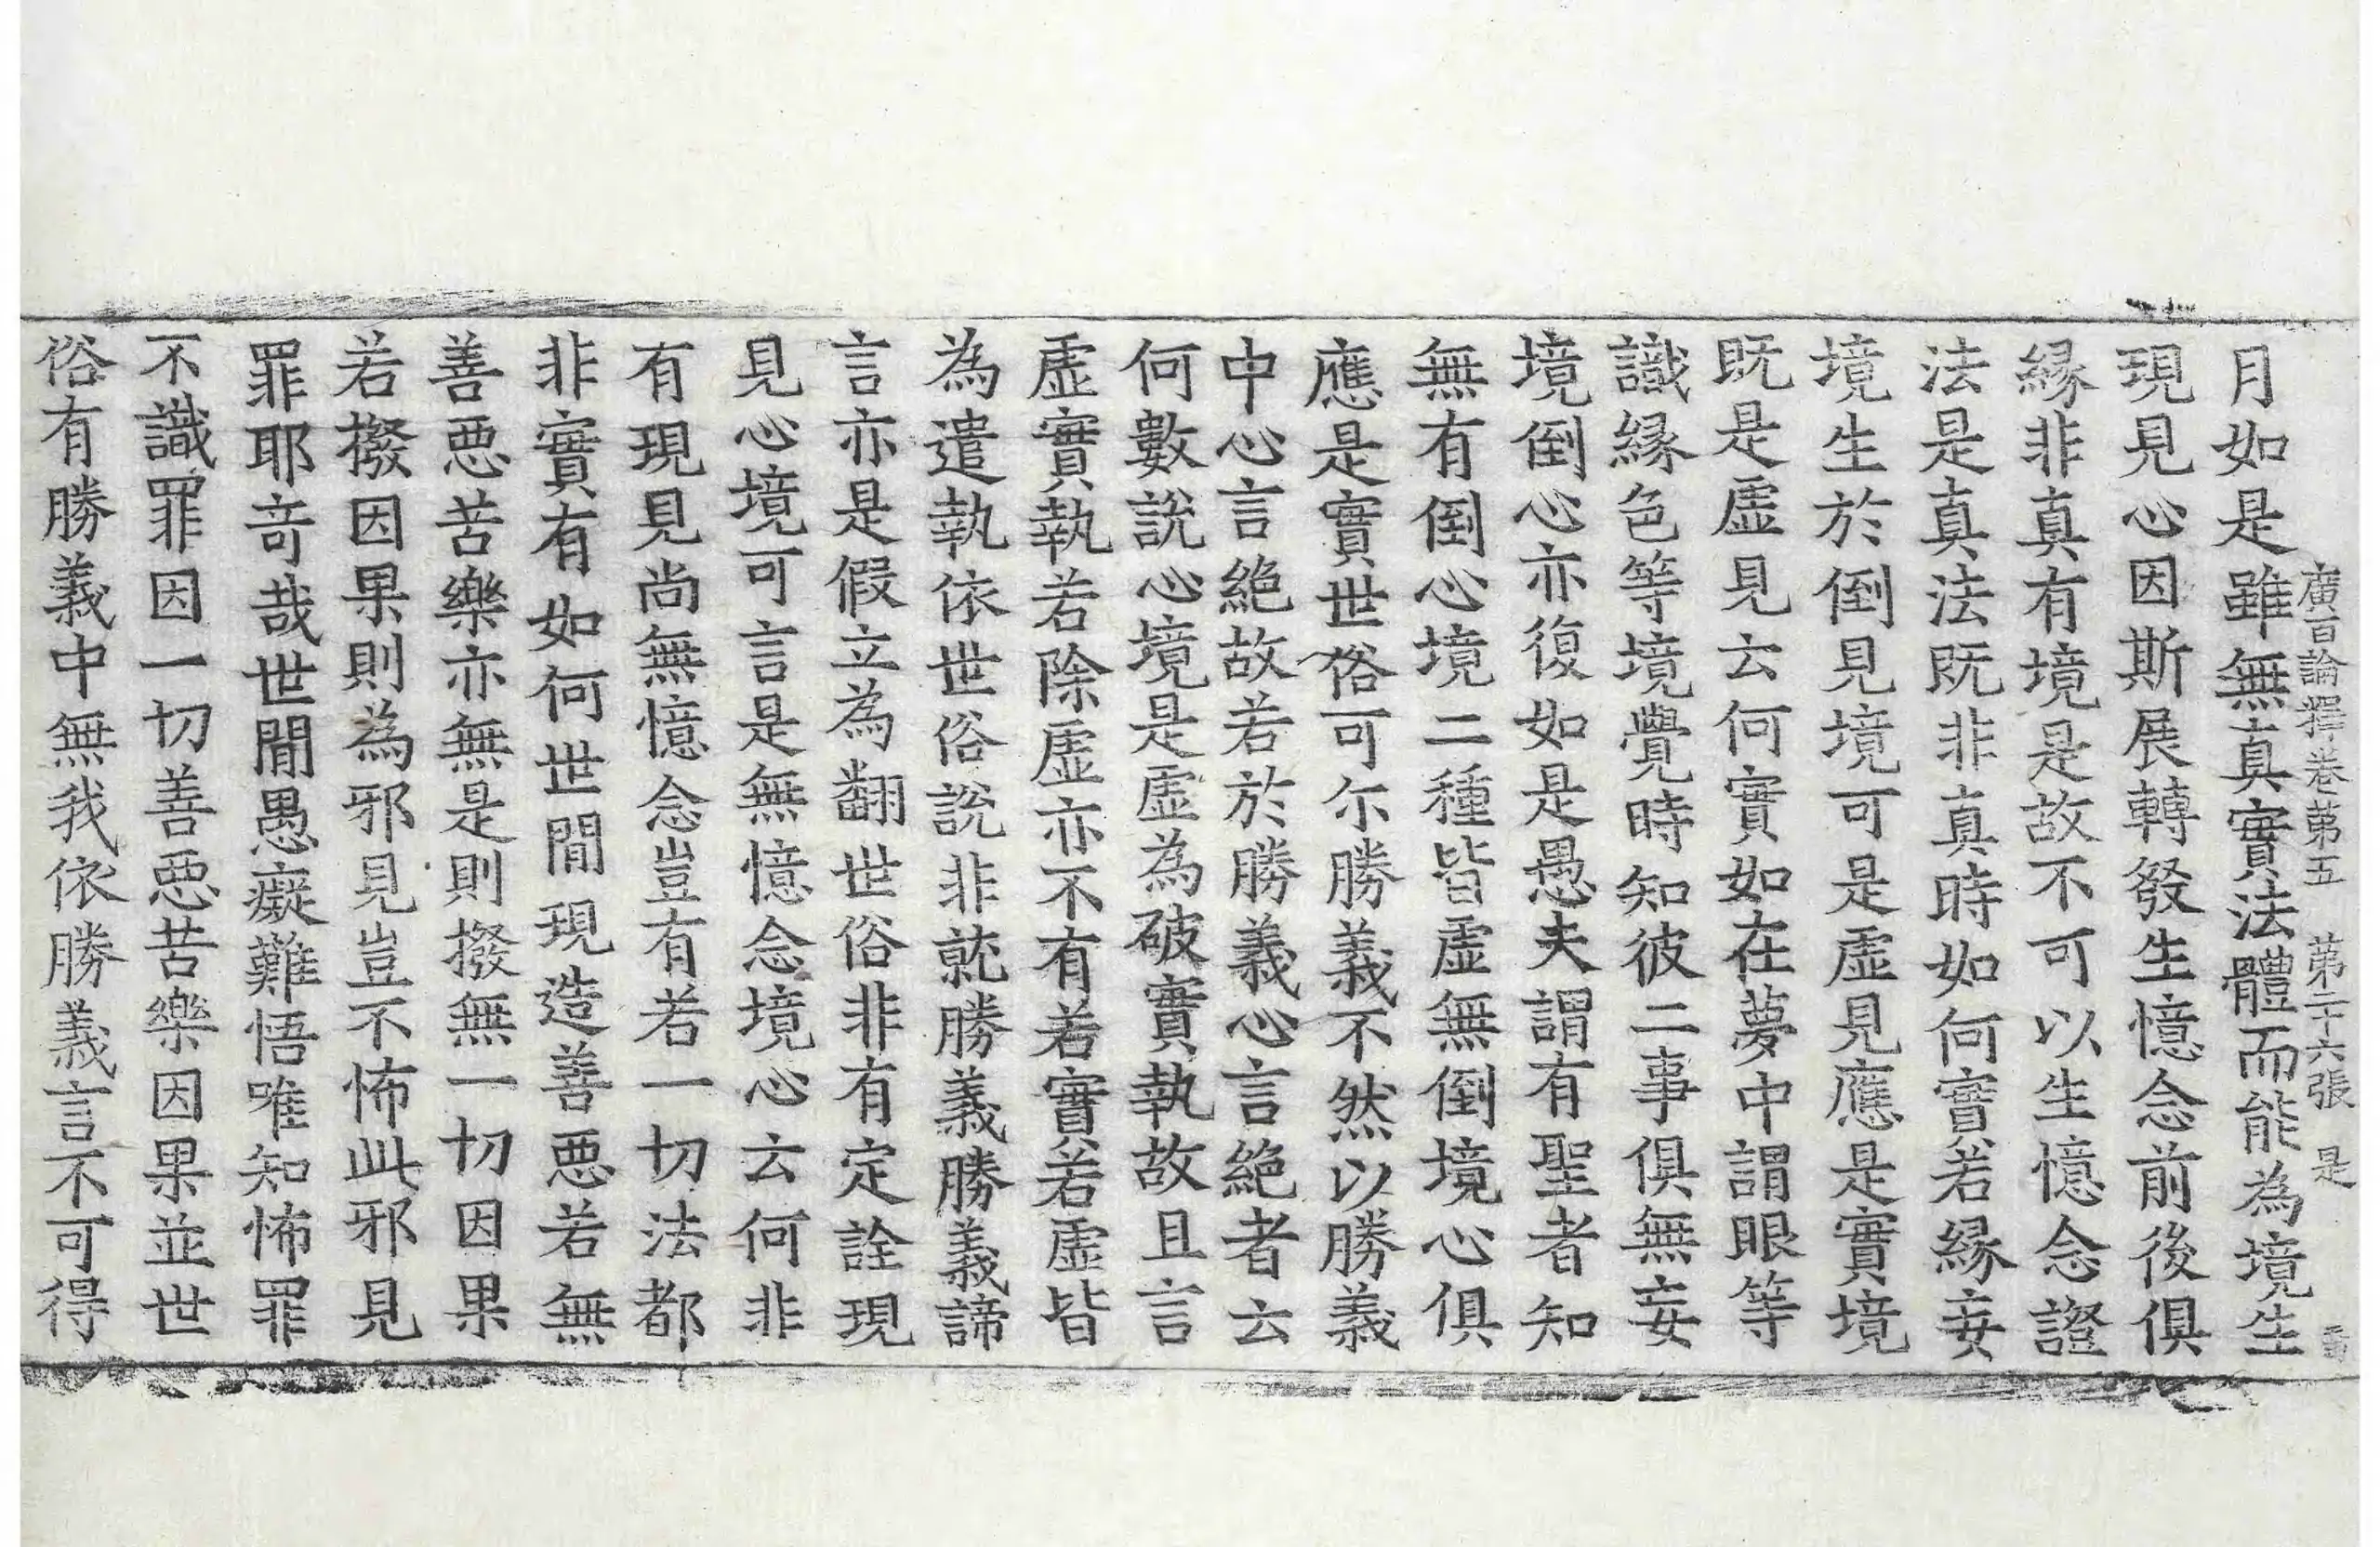 廣百論釋卷第五 第二十六張 是
月如是雖無真實法體而能為境生
現見心因斯展轉發生憶念前後俱
緣非真有境是故不可以生憶念證
法是真法既非真時如何實若緣妄
境生於倒見境可是虛見應是實境
既是虛見云何實如在夢中謂眼等
識緣色等境覺時知彼二事俱無妄
境倒心亦復如是愚夫謂有聖者知
無有倒心境二種皆虛無倒境心俱
應是實世俗可尒勝義不然以勝義
中心言絕故若於勝義心言絕者云
何數說心境是虛為破實執故且言
虛實執若除虛亦不有若實若虛皆
為遣執依世俗說非就勝義勝義諦
言亦是假立為翻世俗非有定詮現
見心境可言是無憶念境心云何非
有現見尚無憶念豈有若一切法都
非實有如何世間現造善惡若無
善惡苦樂亦無是則撥無一切因果
若撥因果則為邪見豈不怖此邪見
罪耶奇哉世間愚癡難悟唯知怖罪
不識罪因一切善惡苦樂因果並世
俗有勝義中無我依勝義言不可得